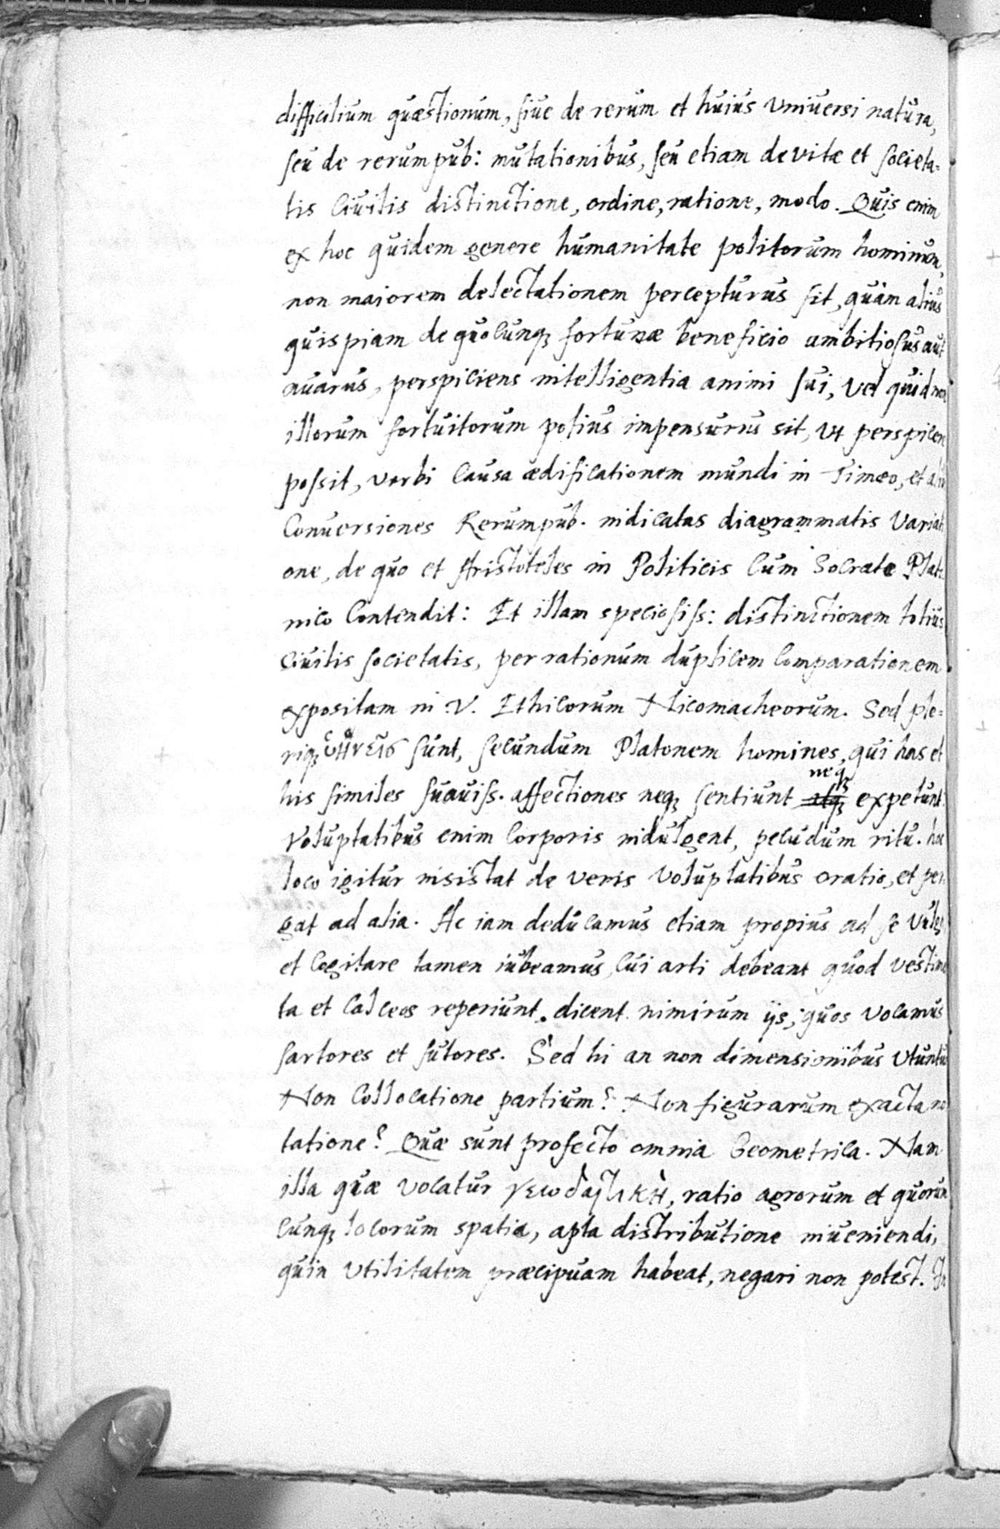 difficilium quæstionum, siue de rerum et huius Vniuersi natura,
seu de rerumpub: mutationibus, seu etiam de vitæ et societa-
tis Ciuilis distinctione, ordine, ratione, modo. Quis enim
ex hoc quidem genere humanitate politorum hominum,
non maiorem delectationem percepturus sit, quàm alius
quispiam de quocunq; fortunæ beneficio ambitiosus aut
auarus, perspiciens intelligentia animi sui, Vel quid non
illorum fortuitorum potius impensurus sit, Vt perspicere
possit, verbi Causa ædificationem mundi in Timæo, et
Conuersiones Rerumpub. indicatas diagrammatis Variati
one, de quo et Aristoteles in Politicis Cum Socrate Plato
nico Contendit: Et illam speciosiss: distinctionem totius
Ciuilis societatis, per rationum duplicem Comparationem
expositam in V. Ethicorum Nicomacheorum. Sed ple-
riq; sunt, secundum Platonem homines, qui has et
his similes suauiss. affectiones neq; sentiunt neq; expetunt
Voluptatibus enim Corporis indulgent, pecudum ritu. hoc
loco igitur insistat de veris Voluptatibus oratio, et per
gat ad alia. Ac iam deducamus etiam propius ad se
et Cogitare tamen iubeamus, Cui arti debeant quod vestimen
ta et Calceos reperiunt. dicent nimirum ijs, quos Vocamus
sartores et sutores. Sed hi an non dimensionibus Vtuntur
Non Collocatione partium? Non figurarum exacta no
tatione? Quæ sunt profecto omnia Geometrica. Nam
illa quæ Vocatur γεωδαιτικὴ, ratio agrorum et quorum
Cunq; locorum spatia, apta distributione inueniendi,
quin Vtilitatem præcipuam habeat, negari non potest.